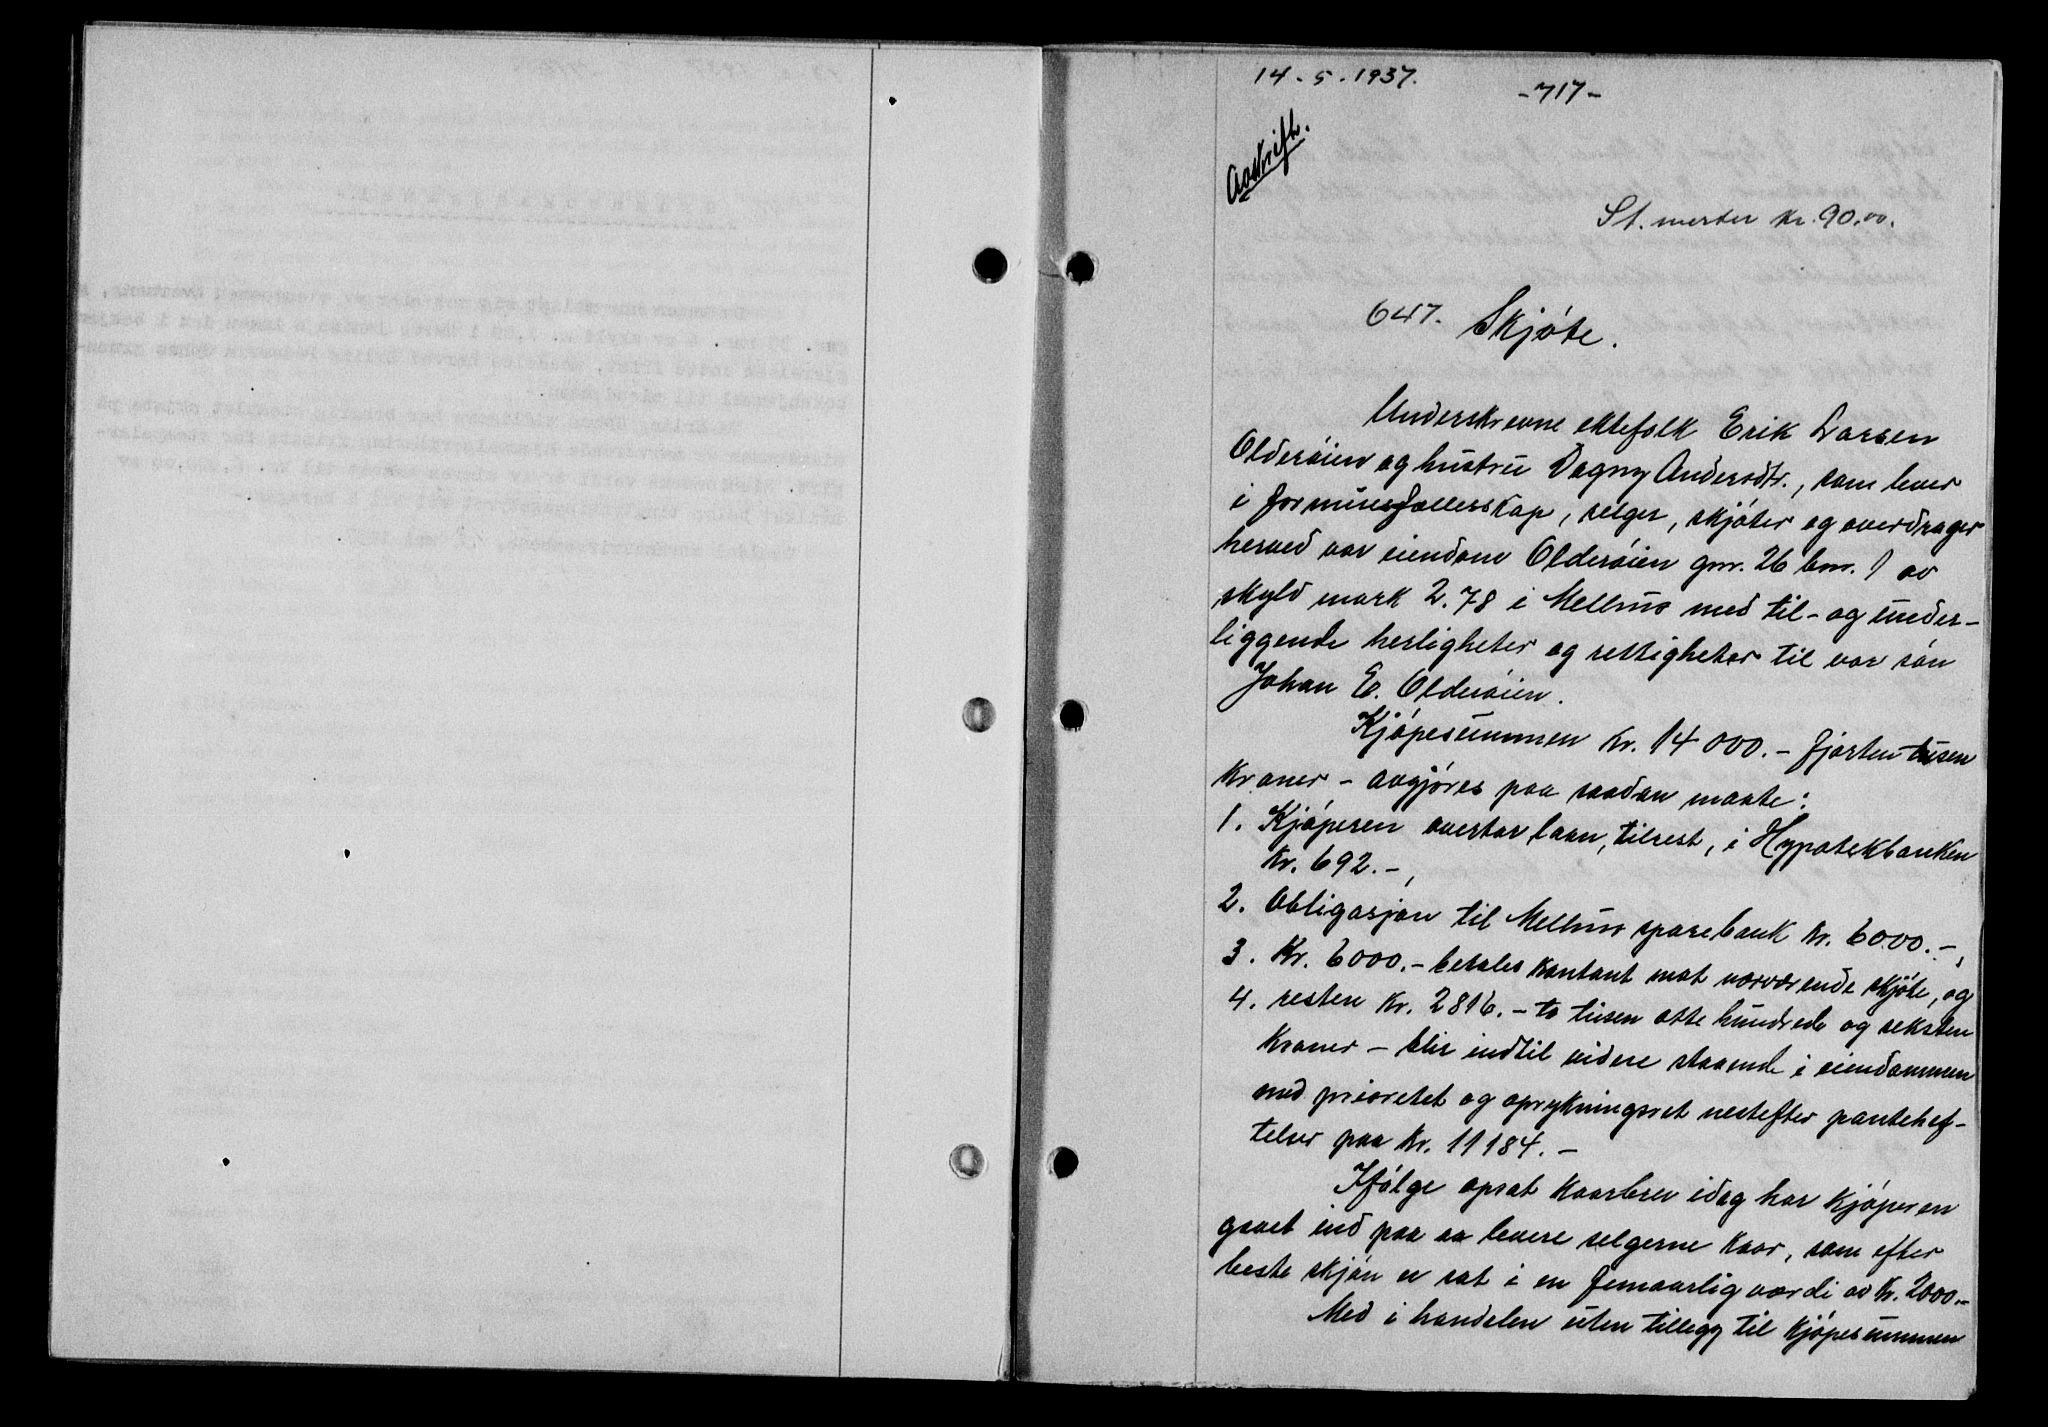 14-5-1937.
-717-
Avskrift.
St. merker kr. 90.00.
647. Skjøte.
Underskrevne ektefolk Erik Larsen
Olderøien og hustru Dagny Andersdtr., som lever
i formuesfællesskap, selger, skjøter og overdrager
herved vor eiendom Olderøien gnr. 26 bnr. 1 av
skyld mark 2.78 i Melhus med til- og under-
liggende herligheter og rettigheter til vor søn
Johan E. Olderøien.
Kjøpesummen kr. 14000.- fjorten tusen
kroner - avgjøres paa saadan maate:
1. Kjøperen overtar laan, tilrest, i Hypotekbanken
kr. 692.-,
2. Obligasjon til Melhus sparebank kr. 6000.-,
3. Kr. 6000.- betales kontant mot nærværende skjøte, og
4. resten kr. 2816.- to tusen otte hundrede og seksten
kroner - blir indtil videre staaende i eiendommen
med prioritet og oprykningsret nestefter pantehef-
telser paa kr. 11184.-
Ifølge opsat kaarbrev idag har kjøperen
gaaet ind paa aa levere selgerne kaar, som efter
beste skjøn er sat i en femaarlig værdi av kr. 2000.-
Med i handelen uten tillegg til kjøpesummen